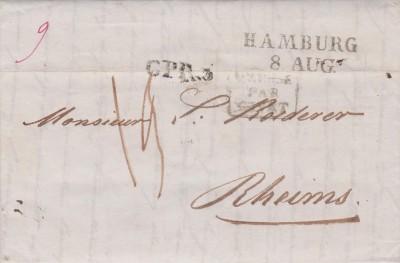 9
HAMBURG
8 AUG.
CPR.3
PAR
Monsieur S. Roederer
Rheims.